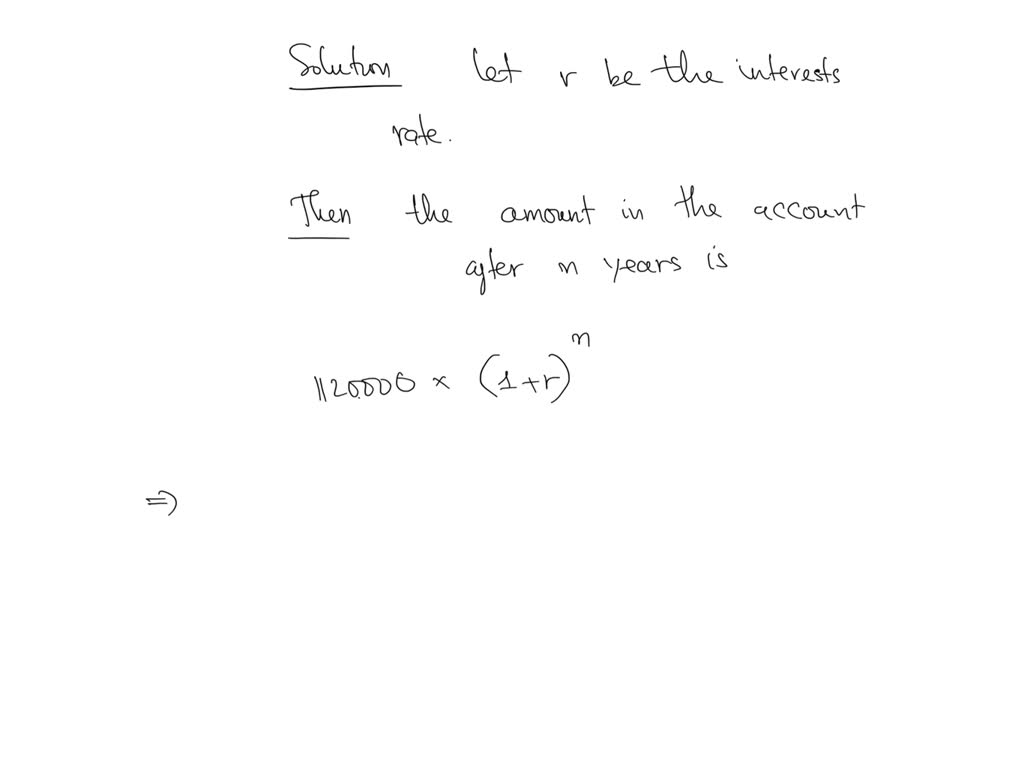 Solution let r be the interests
rate.
Then the amount in the account
after n years is
1120000 × (1+r)^n
⇒